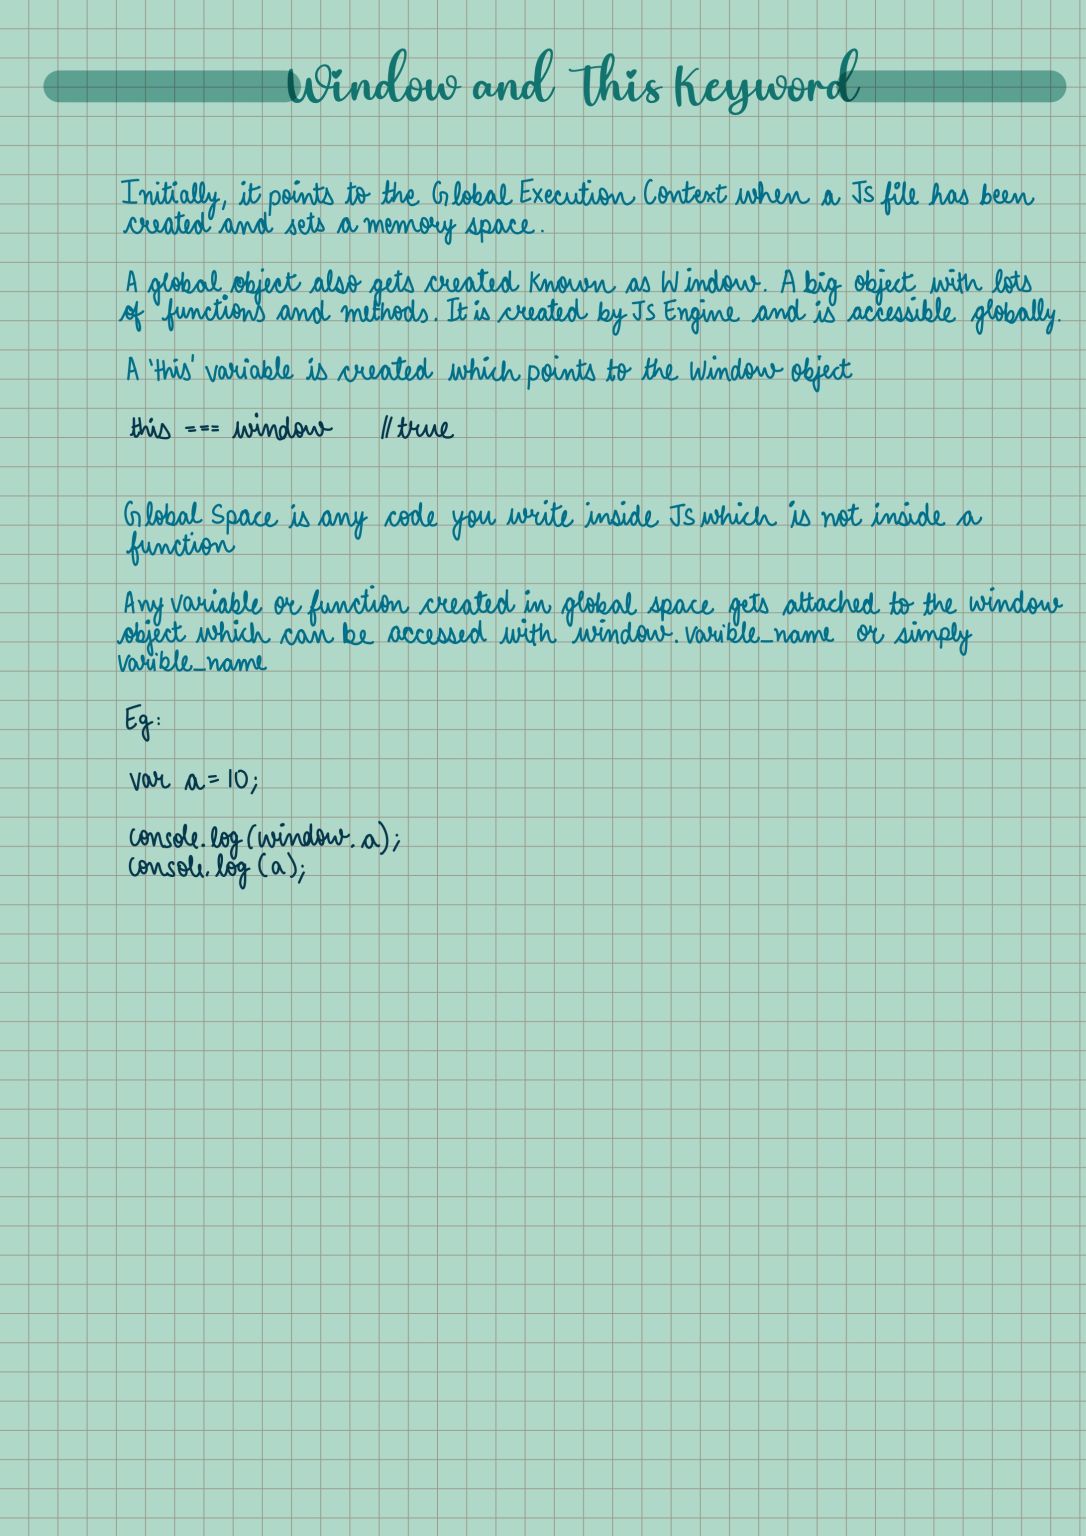 Window and This Keyword
Initially, it points to the Global Execution Context when a JS file has been
created and sets a memory space.
A global object also gets created known as Window. A big object with lots
of functions and methods. It is created by JS Engine and is accessible globally.
A 'this' variable is created which points to the Window object
this === window //true
Global Space is any code you write inside JS which is not inside a
function
Any variable or function created in global space gets attached to the window
object which can be accessed with window.varible_name or simply
varible_name
Eg:
var a = 10;
console.log(window.a);
console.log(a);